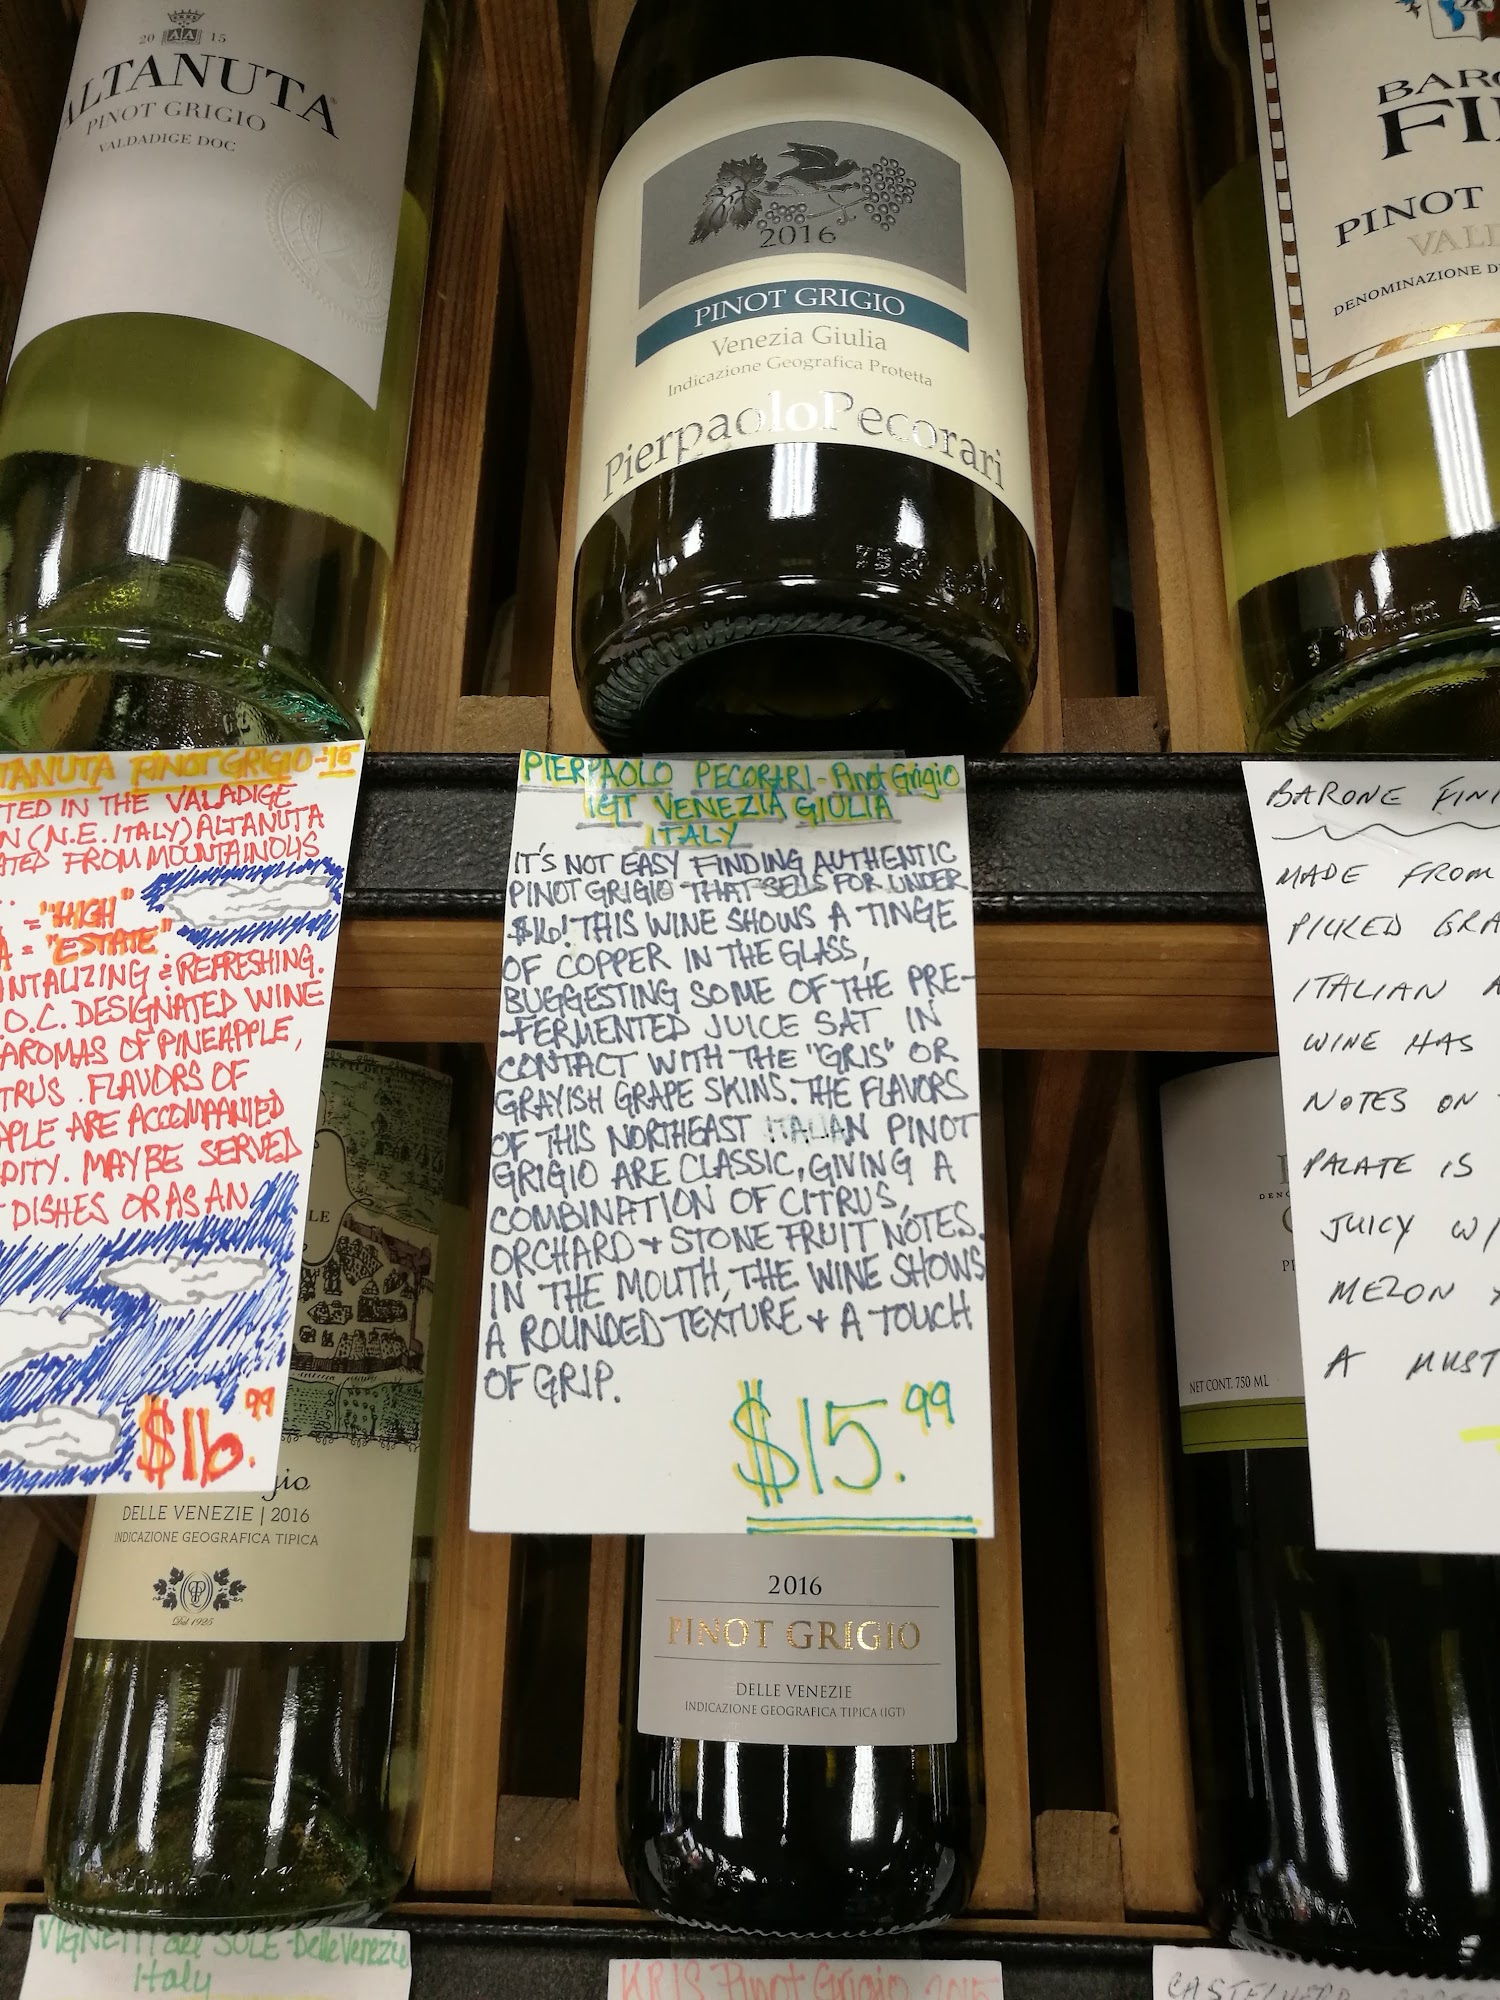 20 15
ALTANUTA
PINOT GRIGIO
VALDADIGE DOC
2016
PINOT GRIGIO
Venezia Giulia
Indicazione Geografica Protetta
PierpaoloPecorari
BARO
FI
PINOT
VALD
DENOMINAZIONE DI
TANUTA PINOT GRIGIO-'15
TED IN THE VALADIGE
N (N.E. ITALY) ALTANUTA
ATED FROM MOUNTAINOUS
= "HIGH"
A = "ESTATE"
NTALIZING & REFRESHING.
.O.C. DESIGNATED WINE
AROMAS OF PINEAPPLE,
TRUS. FLAVORS OF
APLE ARE ACCOMPANIED
DITY. MAY BE SERVED
DISHES OR AS AN
$16.99
PIERPAOLO PECORARI - Pinot Grigio
IGT VENEZIA GIULIA
ITALY
IT'S NOT EASY FINDING AUTHENTIC
PINOT GRIGIO THAT SELLS FOR UNDER
$16! THIS WINE SHOWS A TINGE
OF COPPER IN THE GLASS,
BUGGESTING SOME OF THE PRE-
-FERMENTED JUICE SAT IN
CONTACT WITH THE "GRIS" OR
GRAYISH GRAPE SKINS. THE FLAVORS
OF THIS NORTHEAST ITALIAN PINOT
GRIGIO ARE CLASSIC, GIVING A
COMBINATION OF CITRUS,
ORCHARD + STONE FRUIT NOTES.
IN THE MOUTH, THE WINE SHOWS
A ROUNDED TEXTURE + A TOUCH
OF GRIP.
$15.99
BARONE FINI
MADE FROM
PICKED GRA
ITALIAN A
WINE HAS
NOTES ON
PALATE IS
JUICY W/
MELON
A MUST
gio
DELLE VENEZIE | 2016
INDICAZIONE GEOGRAFICA TIPICA
Dal 1925
2016
PINOT GRIGIO
DELLE VENEZIE
INDICAZIONE GEOGRAFICA TIPICA (IGT)
NET CONT. 750 ML
VIGNETI del SOLE-Delle Venezie
Italy
KRIS Pinot Grigio 2015